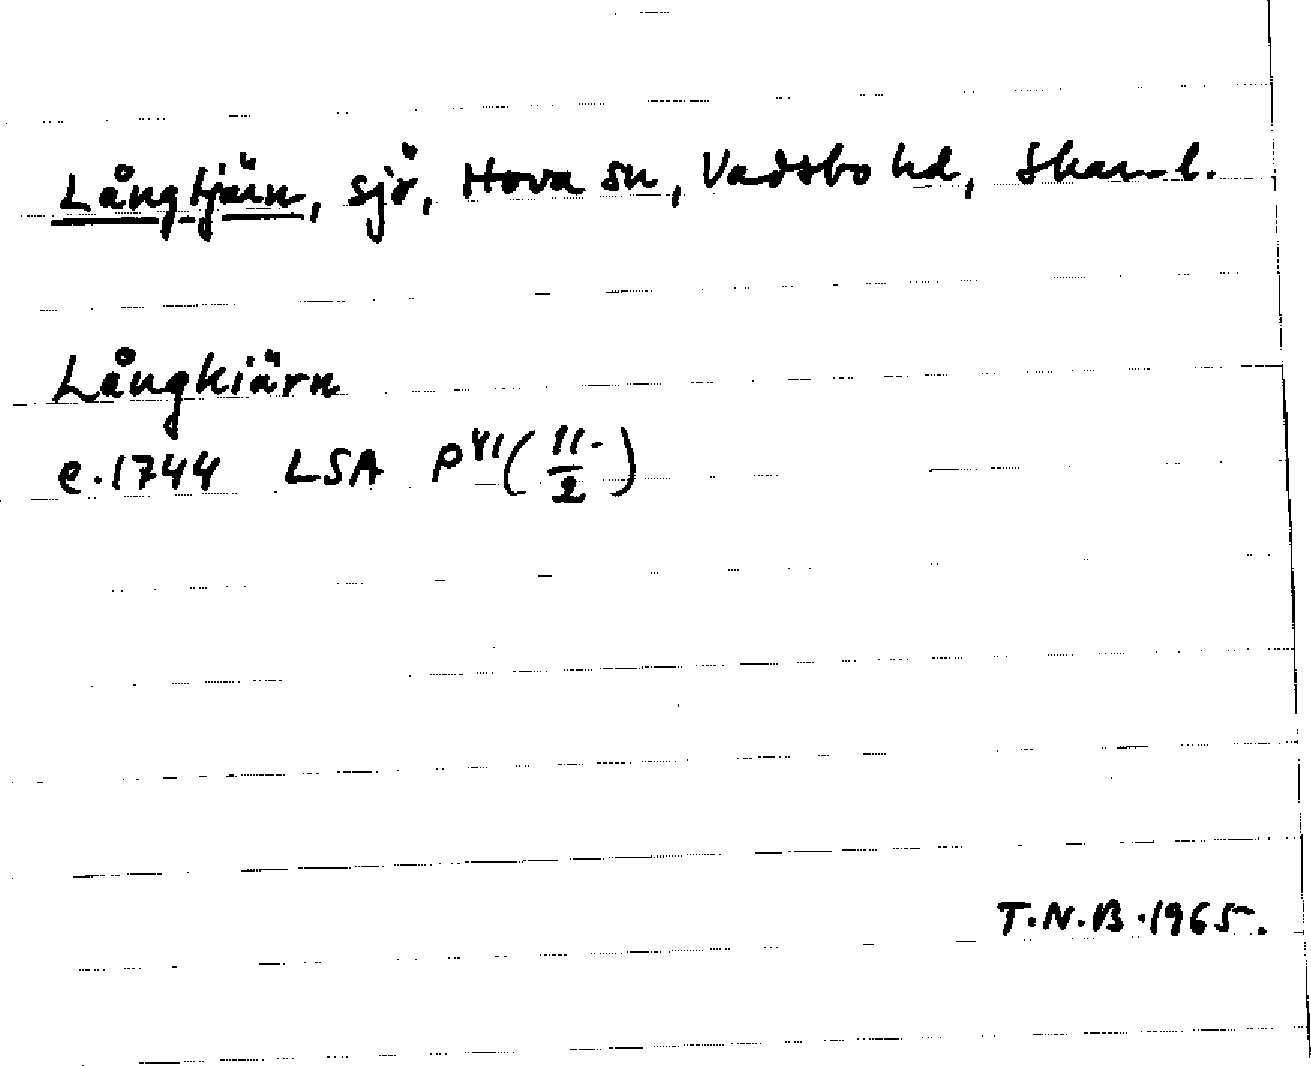 Långtjärn, sjö, Hova sn, Vadsbo hd, Skar. l.
Långkiärn
e. 1744 LSA P VI (11-/2)
T.N.B. 1965.